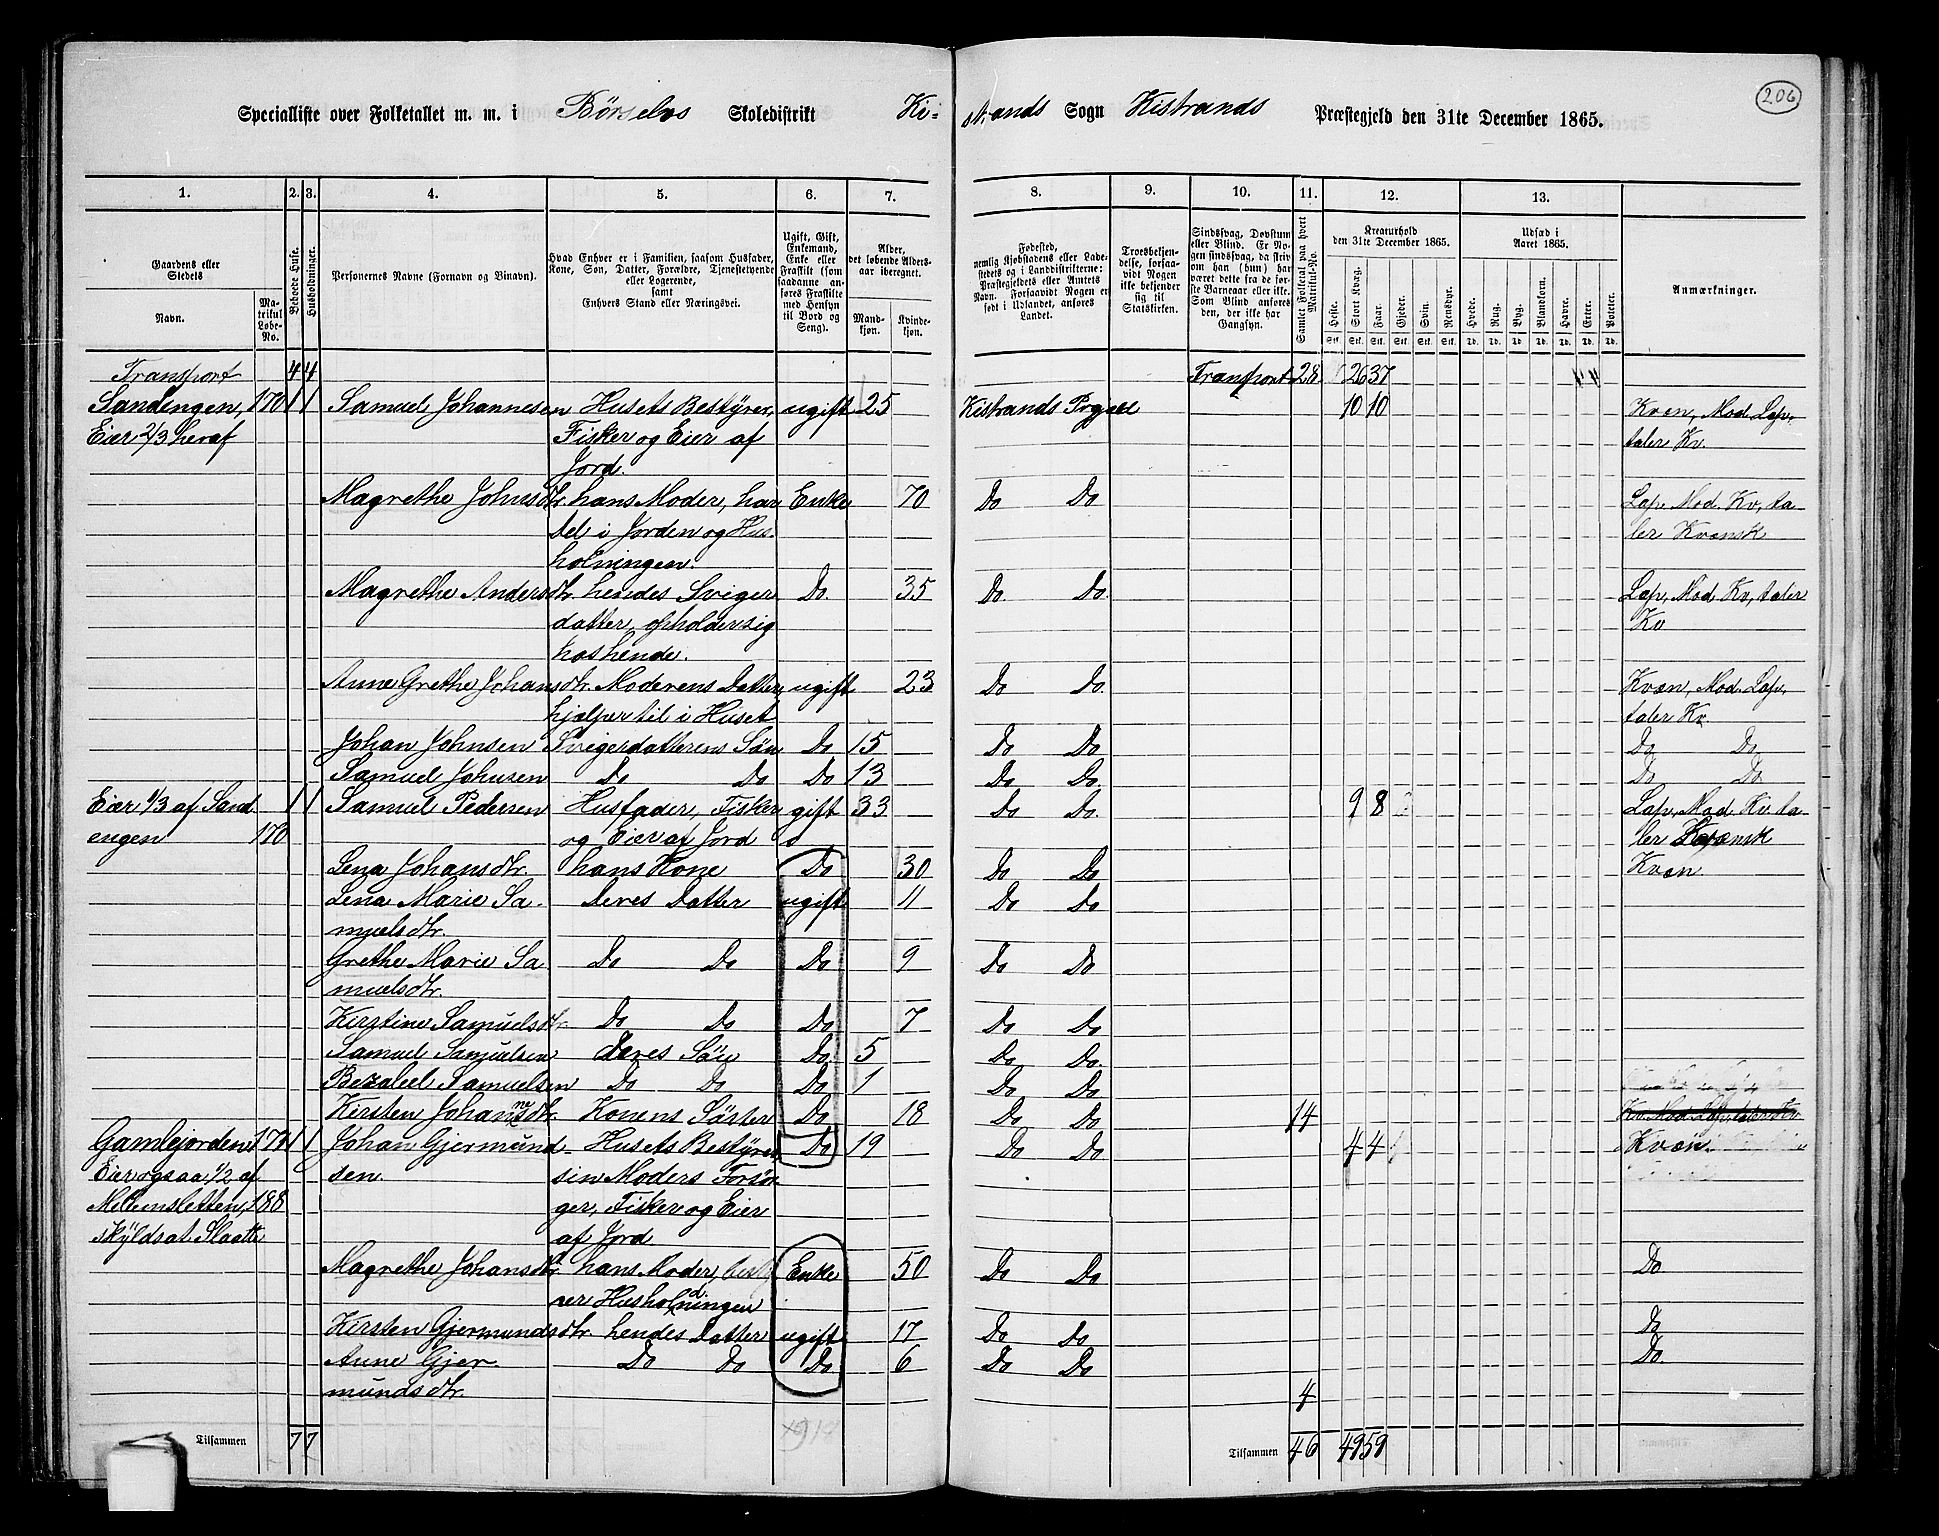 206
Specialliste over Folketallet m. m. i Børselvs Skoledistrikt Ki- strands Sogn Kistrands Præstegjeld den 31te December 1865.
1. 2. 3. 4. 5. 6. 7. 8. 9. 10. 11. 12. 13.
Gaardens eller Stedets
Navn.
Matrikul Løbe-No.
Beboede Huse.
Husholdninger.
Personernes Navne (Fornavn og Binavn).
Hvad Enhver er i Familien, saasom Husfader, Kone, Søn, Datter, Forældre, Tjenestetyende eller Logerende,
samt
Enhvers Stand eller Næringsvei.
Ugift, Gift, Enkemand, Enke eller Fraskilt (som saadanne anføres Fraskilte med Hensyn til Bord og Seng).
Alder, det løbende Aldersaar iberegnet.
Mandkjøn. Kvindekjøn.
Fødested, nemlig Kjøbstadens eller Ladestedets og i Landdistrikterne: Præstegjeldets eller Amtets Navn. Forsaavidt Nogen er født i Udlandet, anføres Landet.
Troesbekjendelse, forsaavidt Nogen ikke bekjender sig til Statskirken.
Sindssvag, Døvstum eller Blind. Er Nogen sindssvag, da skrives om han (hun) har været dette fra de første Barneaar eller ikke. Som Blind anføres den, der ikke har Gangsyn.
Samlet Folketal paa hvert Matrikul-No.
Kreaturhold den 31te December 1865.
Heste. Stort Kvæg. Faar. Gjeder. Svin. Rensdyr.
Stk. Stk. Stk. Stk. Stk. Stk.
Udsæd i Aaret 1865.
Hvede. Rug. Byg. Blandkorn. Havre. Erter. Poteter.
Td. Td. Td. Td. Td. Td. Td.
Anmærkninger.
Transport 4 4 Transport 28 26 37
Sandengen, 170 1 1 Samuel Johannesen Husets Bestyrer, ugift 25 Kistrands Prgjæll 10 10 Kven, Mod. Lap,
Eier 2/3 heraf Fisker og Eier af taler Kv.
Jord.
Magrethe Johnsdtr. hans Moder, har Enke 70 Do Do Lap, Mod. Kv, ta-
del i Jorden og Hus- ler Kvænsk
holningen.
Magrethe Andersdtr. hendes Sviger Do. 35 Do. Do. Lap, Mod Kv, taler
datter, opholder sig Kv
hos hende.
Anne Grethe Johansdtr. Moderens Datter, ugift 23 Do Do. Kvæn, Mod. Lap,
hjælper til i Huset taler Kv.
Johan Johnsen Svigerdatterens Søn Do 15 Do Do Do Do
Samuel Johnsen Do Do Do 13 Do Do. Do Do
Eier 1/3 af Sand- 1 1 Samuel Pedersen Husfader, Fisker gift 33 Do Do. 9 8 Lap, Mod Kv. ta-
engen 170 og Eier af Jord ler Kvænsk
Lena Johansdtr. hans Kone Do 30 Do Do Kvæn
Lena Marie Sa- deres Datter ugift 11 Do Do
muelsdtr.
Grethe Marie Sa Do Do Do 9 Do Do
muelsdtr.
Kirstine Samuelsdtr Do Do Do 7 Do Do
Samuel Samuelsen deres Søn Do. 5 Do Do.
Bezaleel Samuelsen Do Do Do 1 Do Do
Kirsten Johannesdtr. Konens Søster Do 18 Do Do 14
Gamlejorden 171 1 1 Johan Gjermund- Husets Bestyrer, Do 19 Do Do 4 4 Kvæn
Eier ogsaa 1/2 af sen. sin Moders Forsør-
Mellemsletten, 188 ger, Fisker og Eier
skyldsat Slaatte af Jord
Magrethe Johansdtr. hans Moder, besty- Enke 50 Do Do Do
rer Husholdningen
Kirsten Gjermundsdtr. hendes Datter ugift 17 Do Do Do
Anne Gjer- Do Do Do 6 Do Do Do
mundsdtr. 4
Tilsammen 7 7 Tilsammen 46 49 59